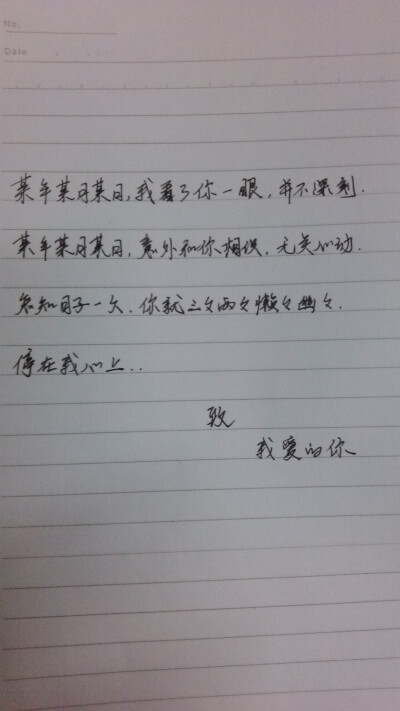 No.
Date
某年某月某日,我看了你一眼,并不深刻.
某年某月某日,意外和你相识,无关心动.
怎知日子一久.你就三三两两懒懒幽幽.
停在我心上..
致
我爱的你